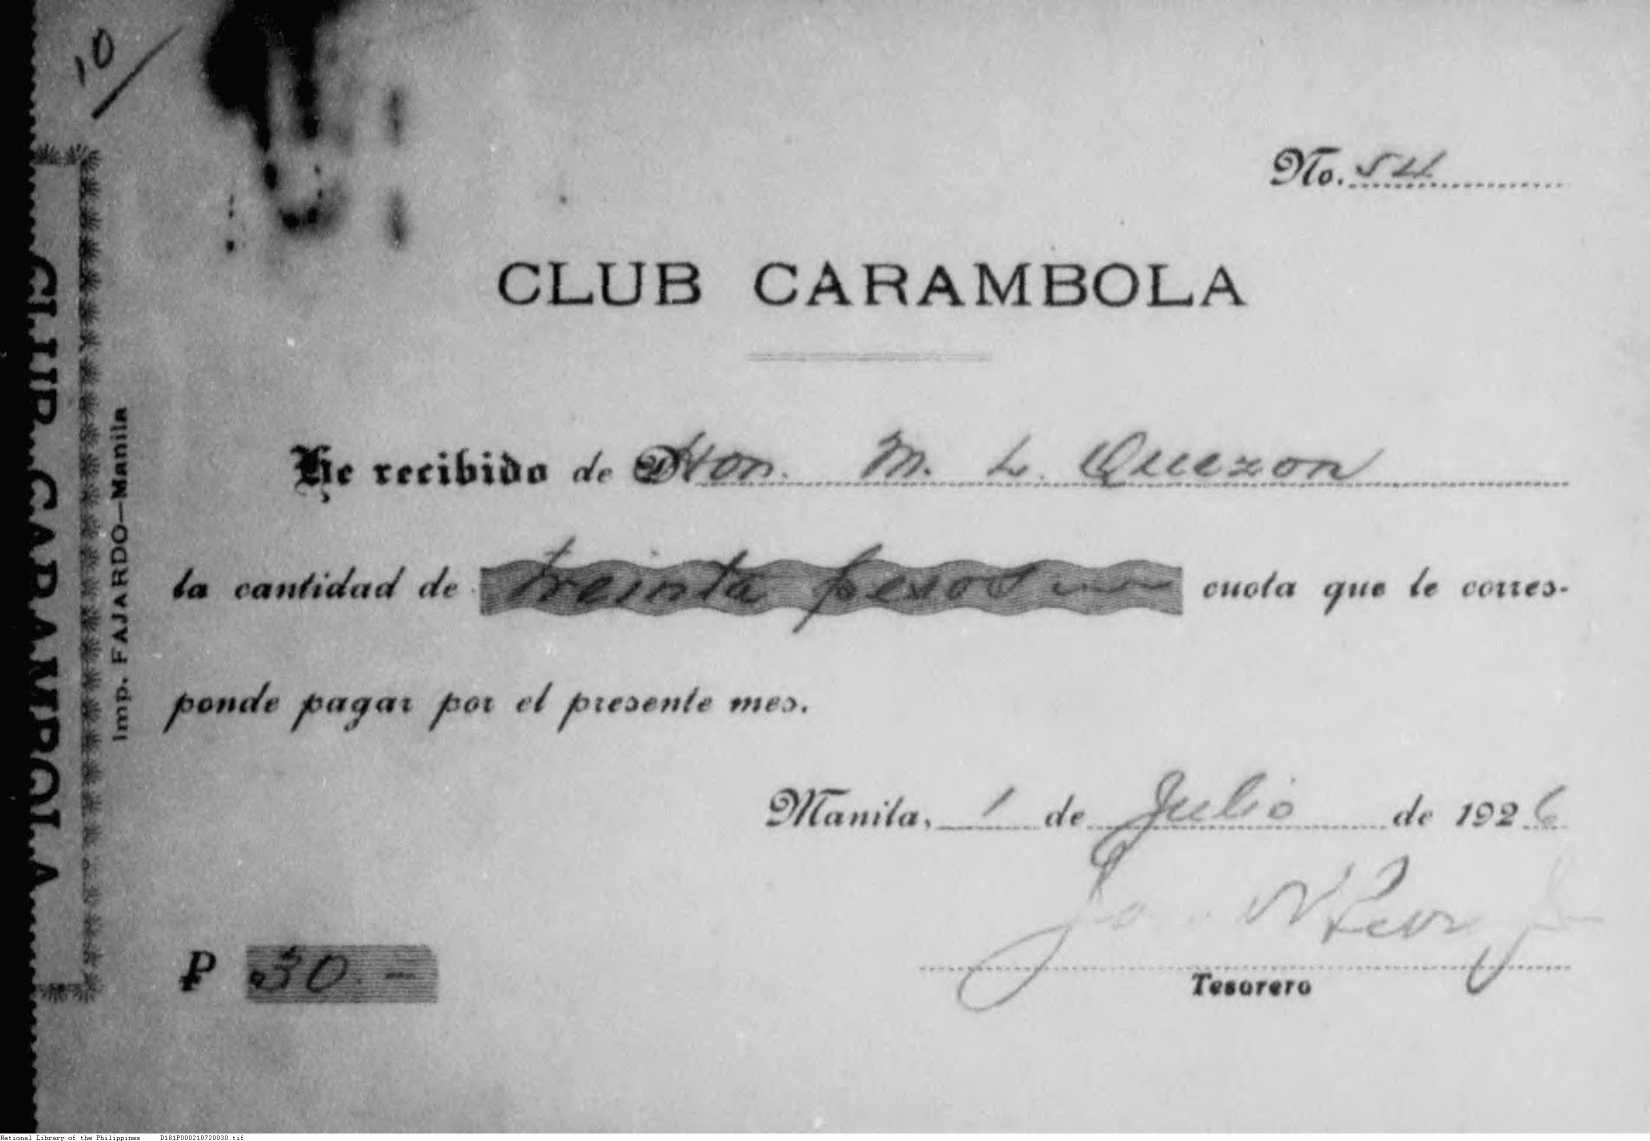 10
No. 54
CLUB CARAMBOLA
He recibido de Hon. M. L. Quezon
la cantidad de treinta pesos cuota que le corres-
ponde pagar por el presente mes.
Manila, 1 de Julio de 1926
₱ 30.-
Tesorero
CLUB CARAMBOLA
Imp. FAJARDO—Manila
National Library of the Philippines D181P000210720030.tif